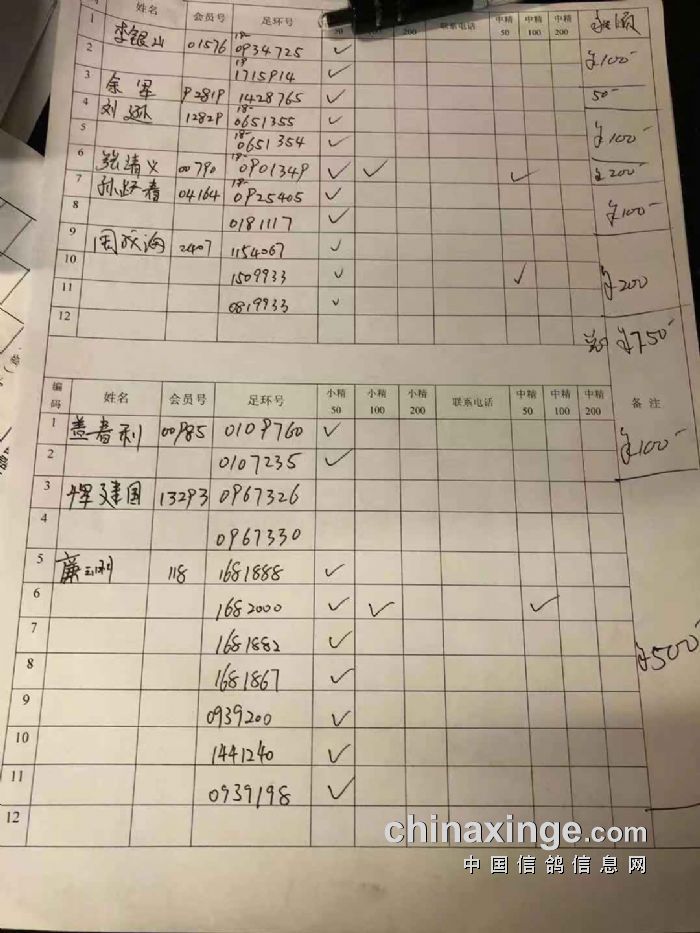 姓名 会员号 足环号 50 100 200 联系电话 中精50 中精100 中精200
1 李银山 01576 18- 0934725 ✓
2 18 1715914 ✓ ¥100-
3 余军 1428765 ✓ 50-
4 刘 12829 18- 0651355 ✓
5 18- 0651354 ✓ ¥100-
6 张清义 00790 18- 0901349 ✓ ✓ ✓ ¥200-
7 孙跃春 04164 18- 0925405 ✓
8 0181117 ✓ ¥100-
9 周成海 2407 1154067 ✓
10 1509933 ✓ ✓ ¥200
11 0819933 ✓
12 ¥750-
编码 姓名 会员号 足环号 小精50 小精100 小精200 联系电话 中精50 中精100 中精200 备注
1 盖春利 00985 0109760 ✓
2 0107235 ✓ ¥100-
3 建国 13293 0967326
4 0967330
5 廉玉利 118 1681888 ✓
6 1682000 ✓ ✓ ✓
7 1681882 ✓
8 1681867 ✓ ¥500-
9 0939200 ✓
10 1441240 ✓
11 0939198 ✓
12
chinaxinge.com
中国信鸽信息网